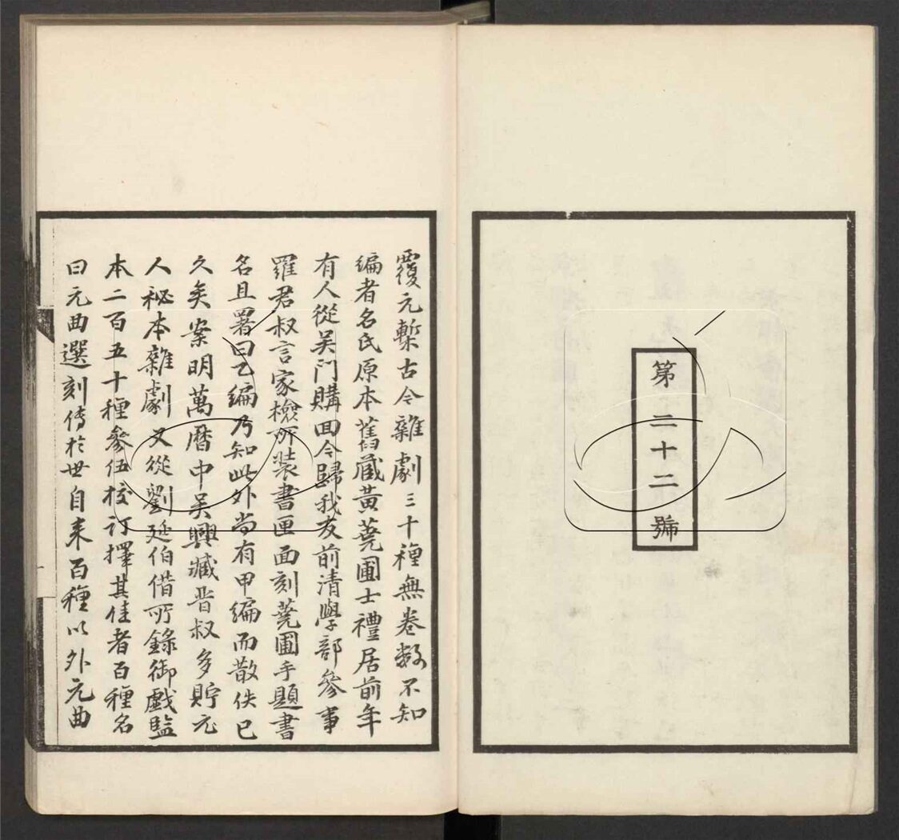 第二十二號
覆元槧古今雜劇三十種無卷數不知
編者名氏原本舊藏黃蕘圃士禮居前年
有人從吳門購回今歸我友前清學部參事
羅君叔言家檢所裝書匣面刻蕘圃手題書
名且署曰乙編乃知此外尚有甲編而散佚已
久矣案明萬曆中吳興臧晉叔多貯元
人秘本雜劇又從劉延伯借所錄御戲監
本二百五十種參伍校訂擇其佳者百種名
曰元曲選刻傳於世自來百種以外元曲